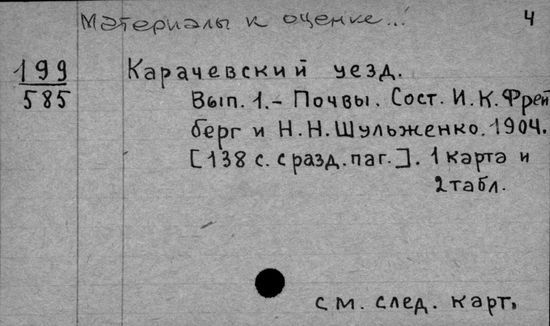 Материалы к оценке... 4
199 Карачевский уезд.
585 Вып. 1.- Почвы. Сост. И.К.Фрей
берг и Н.Н.Шульженко. 1904.
[138 с. с разд. паг.]. 1 карта и
2 табл.
см. след. карт.